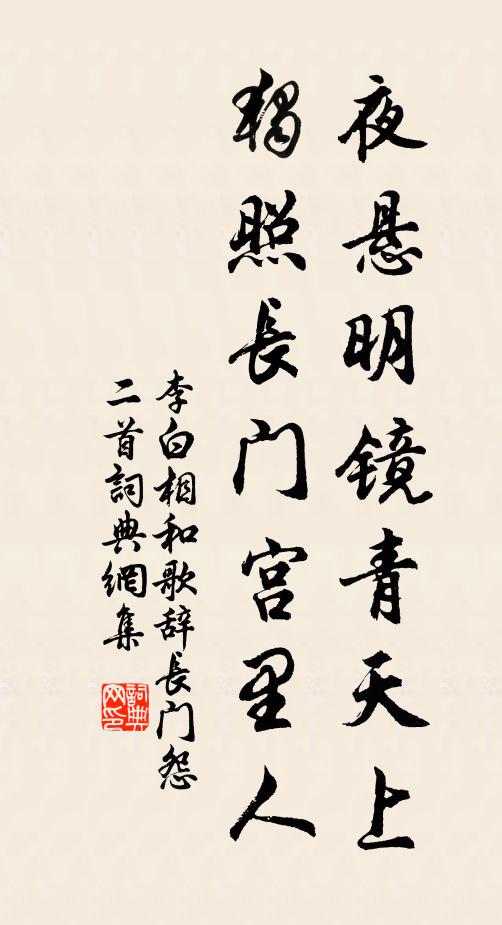 夜悬明镜青天上
独照長门宫里人
李白相和歌辞長门怨
二首詞典網集
詞典网印